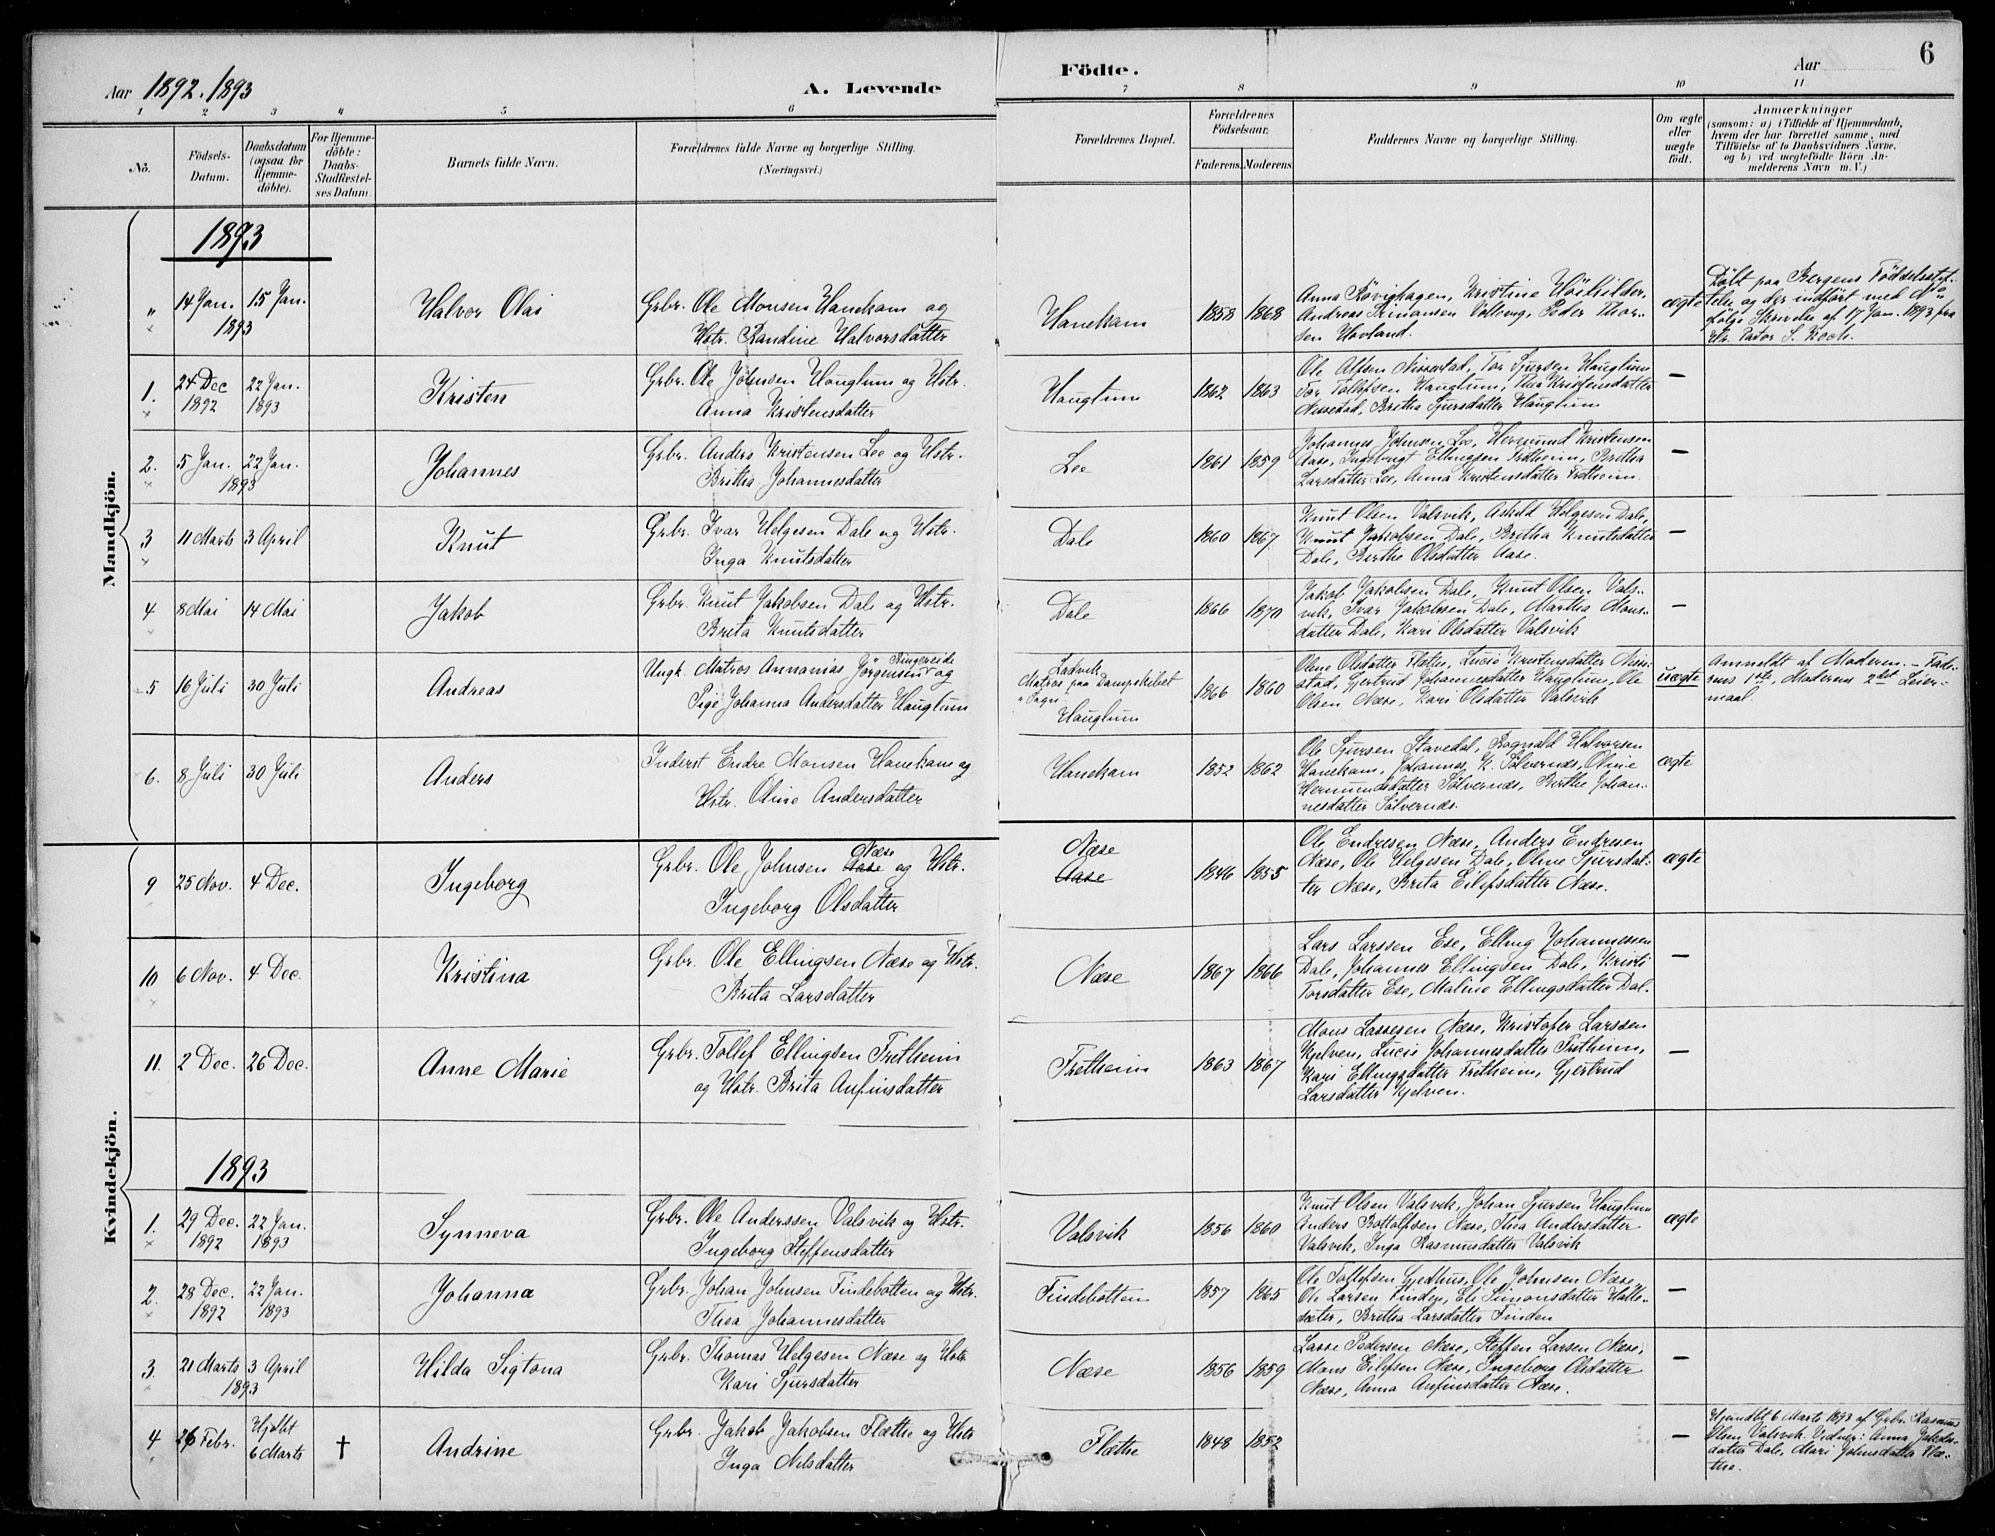 6
Aar 1892. 1893
A. Levende
Födte.
Aar
1 2 3 4 5 6 7 8 9 10 11
No.
Födsels-
Datum.
Daabsdatum
(ogsaa for
Hjemme-
döbte).
For Hjemme-
döbte:
Daabs-
Stadfæstel-
ses Datum.
Barnets fulde Navn.
Forældrenes fulde Navne og borgerlige Stilling.
(Næringsvei.)
Forældrenes Bopæl.
Forældrenes
Födselsaar.
Faderens. Moderens.
Faddernes Navne og borgerlige Stilling.
Om ægte
eller
uægte
födt.
Anmærkninger
(saasom: a) i Tilfælde af Hjemmedaab,
hvem der har forrettet samme, med
Tilföielse af to Daabsvidners Navne,
og b) ved uægtefödte Börn An-
melderens Navn m. V.)
Mandkjön.
1893
" 14 Jan. 15 Jan.
1893
Halvor Olai
Grbr. Ole Monsen Hanekam og
Hstr. Randine Halvorsdatter
Hanekam
1858 1868
Anna Rövighagen, Kristine Höskilder,
Andreas Vattevig, Peder Thor-
sen Hovland.
ægte
Döbt paa Bergens Föddelsestif-
telse og der indfört med No
fölge Skrivelse af 17 Jan. 1893 fra
Hr. Pastor S. Koch.
1. 24 Dec 22 Jan.
1892 1893
Kristen
Grbr. Ole Johnsen Hauglum og Hstr.
Anna Kristensdatter
Hauglum
1862 1863
Ole Alfsen Nissestad, Tor Sjursen Hauglum
Tor Tollefsen Hauglum, Kristensdatter
Nissestad, Britha Sjursdatter Hauglum
—
2. 5 Jan. 22 Jan.
1893
Johannes
Grbr. Anders Kristensen Lee og Hstr.
Britha Johannesdatter
Lee
1861 1859
Johannes Johnsen Lee, Hermund Kristensen
Aase, Ingebrigt Ellingsen Fretheim, Britha
Larsdatter Lee, Anna Kristensdatter Fretheim.
—
3 11 Marts 3 April
Knut
Grbr. Ivar Helgesen Dale og Hstr.
Inga Knutsdatter
Dale
1860 1867
Knut Olsen Valsvik, Askild Helgesen Dale,
Knut Jakobsen Dale, Britha Knutsdatter
Dale, Birthe Olsdatter Aase.
—
4 8 Mai 14 Mai
Jakob
Grbr. Knut Jakobsen Dale og Hstr.
Brita Knutsdatter
Dale
1866 1870
Jakob Jakobsen Dale, Knut Olsen Vals-
vik, Ivar Jakobsen Dale, Martha Mons-
datter Dale, Kari Olsdatter Valsvik
—
5 16 Juli 30 Juli
Andreas
Ringereide
Ungk. Matros Annanias Jörgensen og
Pige Johanna Andersdatter Hauglum
Ladvik
Matros paa Dampskibet
Hauglum
1866 1860
Oline Olsdatter Flette, Lucie Kristensdatter Nisse-
stad, Gjertrud Johannesdatter Hauglum, Ole
Olsen Næse, Kari Olsdatter Valsvik
uægte
Anmeldt af Moderen. – Fade-
rens 1ste, Moderens 2det Leier-
maal.
6. 8 Juli 30 Juli
Anders
Inderst Endre Monsen Hanekam og
Hstr. Oline Andersdatter
Hanekam
1852 1862
Ole Sjursen Stavedal, Rognald Halvorsen
Hanekam, Johannes K. Sölvernes, Oline
Hermundsdatter Sölvernes, Birthe Johan-
nesdatter Sölvernes.
ægte
Kvindekjön.
9 25 Nov. 4 Dec.
Ingeborg
Næse
Grbr. Ole Johnsen Aase og Hstr.
Ingeborg Olsdatter
Næse
Aase
1846 1855
Ole Endresen Næse, Anders Endresen
Næse, Ole Helgesen Dale, Oline Sjursdat-
ter Næse, Brita Eilefsdatter Næse.
ægte
10 6 Nov. 4 Dec.
Kristina
Grbr. Ole Ellingsen Næse og Hstr.
Brita Larsdatter
Næse
1867 1866
Lars Larssen Ese, Elling Johannessen
Dale, Johannes Ellingsen Dale, Kristi
Torsdatter Ese, Maline Ellingsdatter Dal.
—
11. 2 Dec. 26 Dec.
Anne Marie
Grbr. Tollef Ellingsen Fretheim
og Hstr. Brita Anfinsdatter
Fretheim
1863 1867
Mons Lassesen Næse, Kristofer Larssen
Kjelven, Lucie Johannesdatter Fretheim,
Kari Ellingsdatter Fretheim, Gjertrud
Larsdatter Kjelven.
—
1893
1. 29 Dec. 22 Jan.
1892 1893
Synneva
Grbr. Ole Anderssen Valsvik og Hstr.
Ingeborg Steffensdatter
Valsvik
1856 1860
Knut Olsen Valsvik, Johan Sjursen Hauglum
Anders Bottolfsen Næse, Thea Andersdatter
Valsvik, Inga Rasmusdatter Valsvik
ægte
2. 28 Dec. 22 Jan.
1892 1893
Johanna
Grbr. Johan Johnsen Findebotten og Hstr.
Thea Johannesdatter
Findebotten
1857 1865
Ole Tollefsen Gjedhus, Ole Johnsen Næse,
Ole Larsen Finden, Eli Simonsdatter Halle-
sæter, Britha Larsdatter Finden
—
3. 21 Marts 3 April
1893
Hilda Sigtona
Grbr. Thomas Helgesen Næse og Hstr.
Kari Sjursdatter
Næse
1856 1859
Lasse Pedersen Næse, Steffen Larsen Næse,
Mons Eilefsen Næse, Ingeborg Olsdatter
Næse, Anna Anfinsdatter Næse.
—
4 26 Febr. Hjdbt
6 Marts
†
Andrine
Grbr. Jakob Jakobsen Flætte og Hstr
Inga Nilsdatter
Flætte
1848 1852
—
Hjemdbt 6 Marts 1893 af Grbr. Rasmus
Olsen Valsvik. Vidner: Anna Jakobs-
datter Dale, Mari Johnsdatter Flæ-
tte.